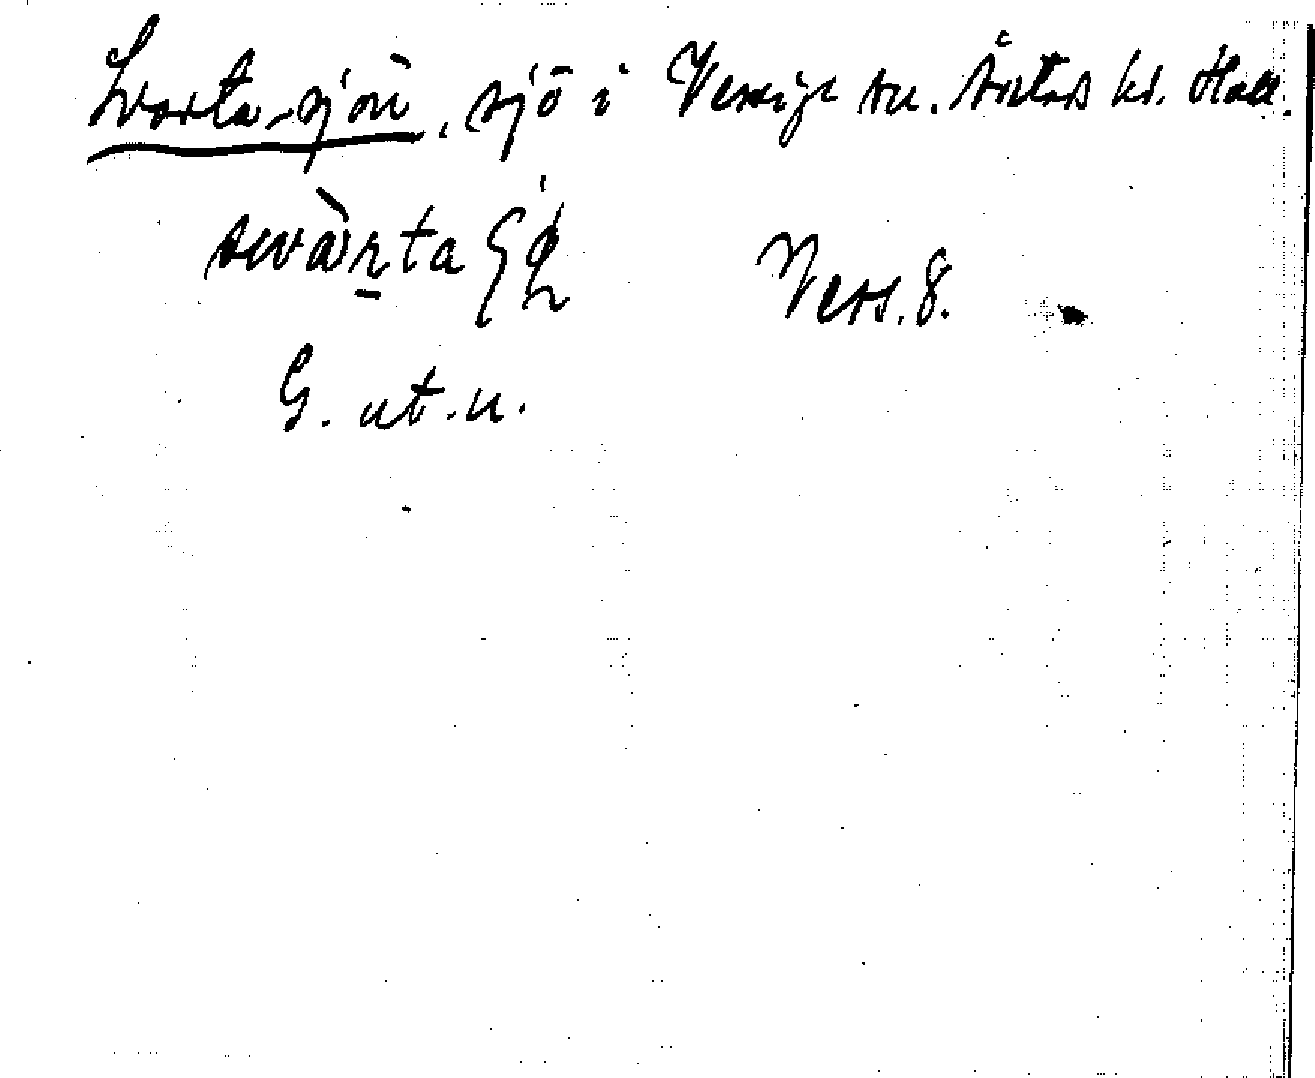 Svarta-sjön, sjö i Vessige sn. Årstads hd. Hall.
swàrta
Vess. 8.
G. ut. u.